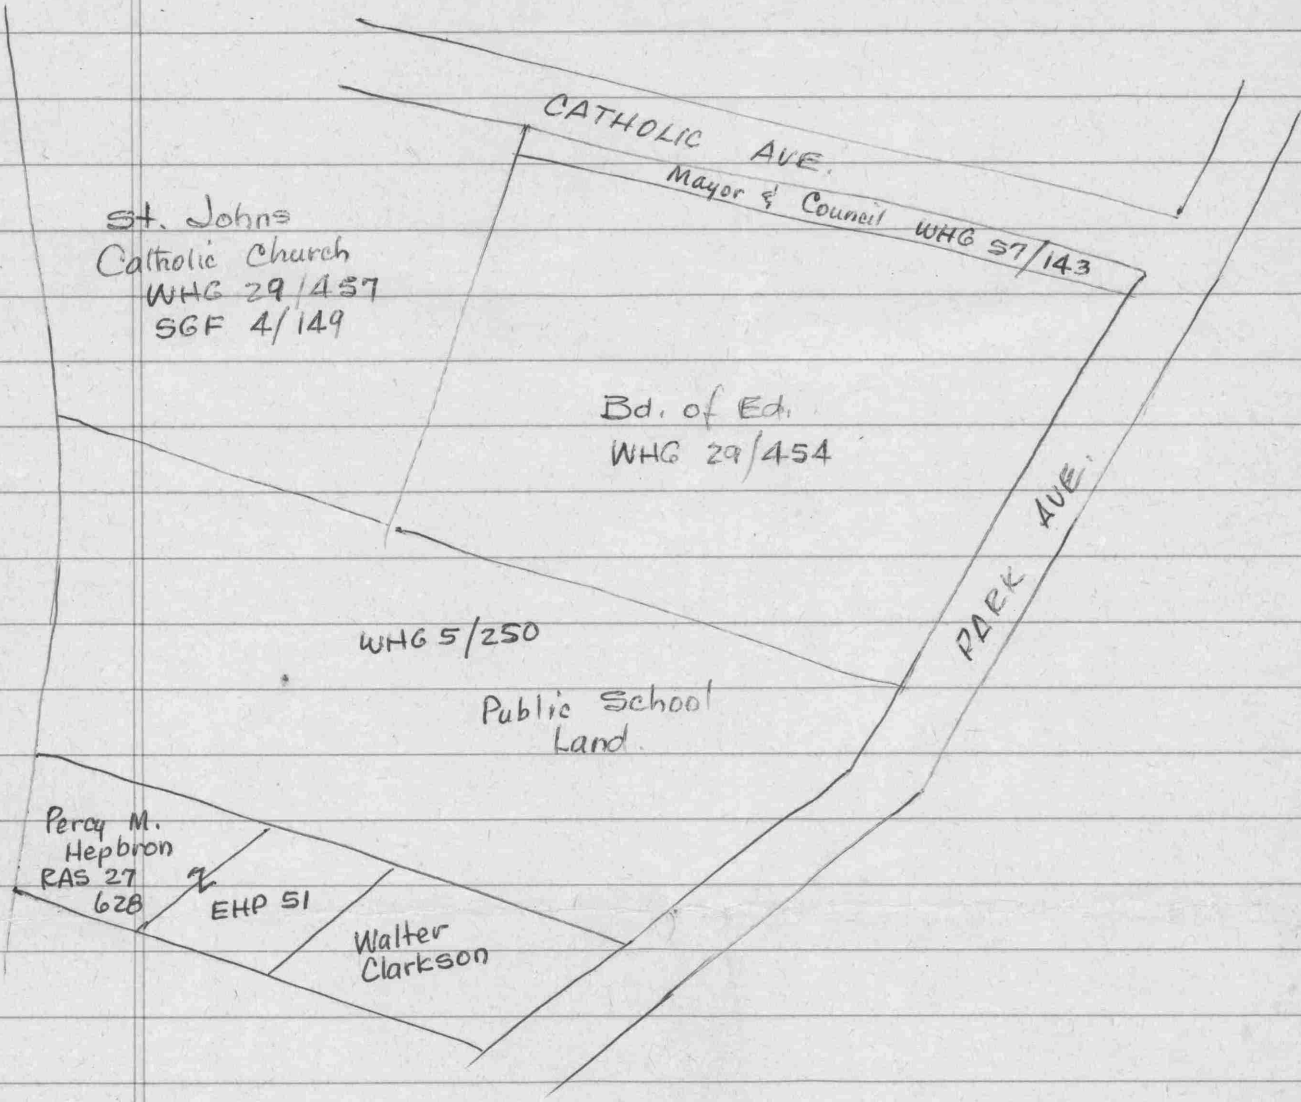 CATHOLIC AVE.
Mayor & Council WHG 57/143
St. Johns
Catholic Church
WHG 29/457
SGF 4/149
Bd. of Ed.
WHG 29/454
PARK AVE.
WHG 5/250
Public School
Land.
Percy M.
Hepbron
RAS 27
628
EHP 51
Walter
Clarkson